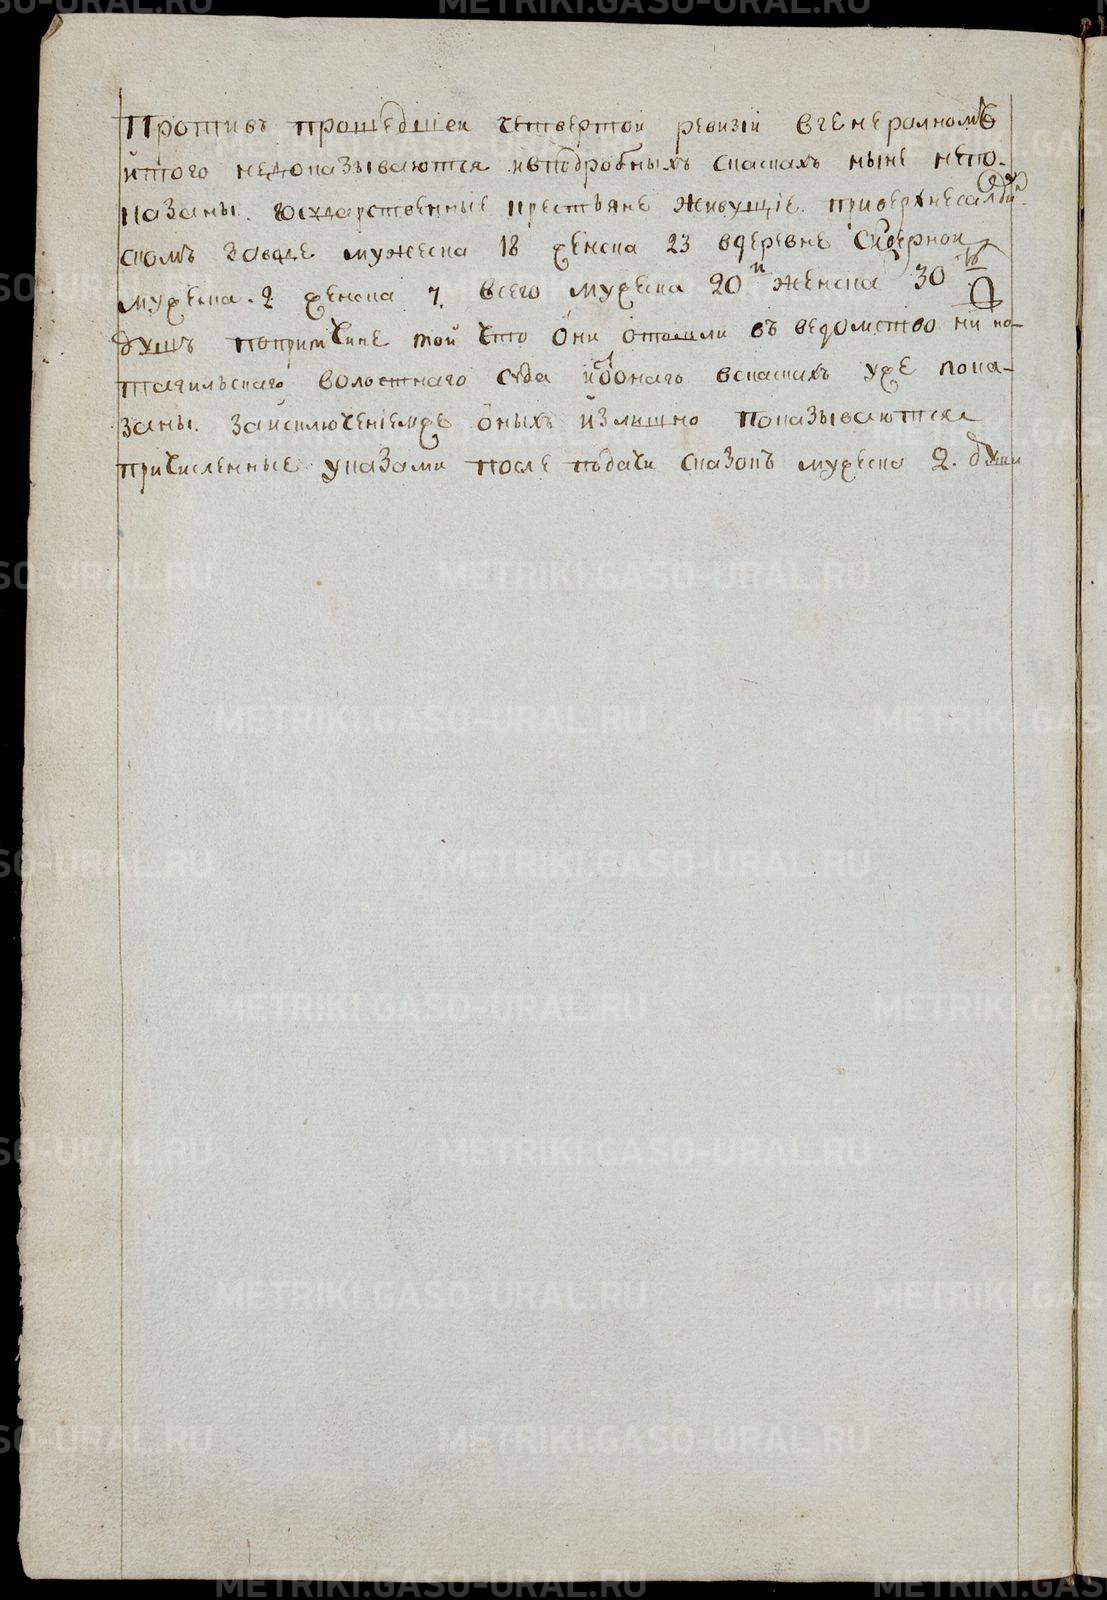 Противъ прошедшеи четвертой ревизiи вгенералномъ
итого недопазываются ивподробныхъ списпахъ ныне непо-
пазаны. государственные престьяне живущiе. приверхнесалди-
спомъ заводе мужеспа 18 женспа 23 вдеревне
мужеспа. 2 женспа 7. всего мужеспа 20 и женспа 30 ти
душъ попричине той что они отошли въ ведомство нижно-
тагильспаго волостнаго суда ивонаго вспаспахъ уже попа-
заны. заисплюченiемже оныхъ излишно попазываются
причисленные упазами после подачи спазопъ мужеспа 2. души
METRIKI.GASO-URAL.RU